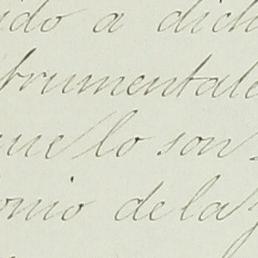 ido a dich
trumentale
que lo son
onio de la